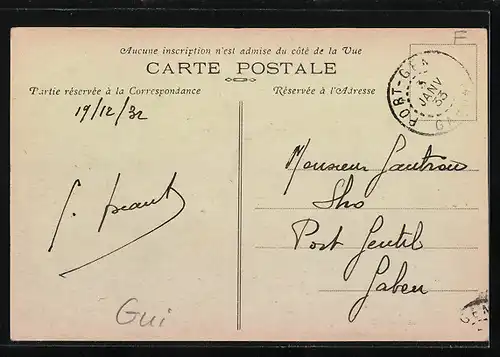 F
Aucune inscription n'est admise du côté de la Vue
CARTE POSTALE
Partie réservée à la Correspondance
Réservée à l'Adresse
19/12/32
PORT-GEN
JANV
33
GA
Monsieur Gautron
Sho
Port Gentil
Gabon
Gui
GEN